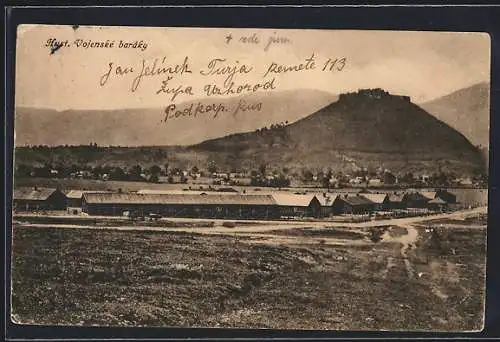 Hust. Vojenské baráky
Jan Jelínek Turja remete 113
Župa Užhorod
Podkarp. Rus